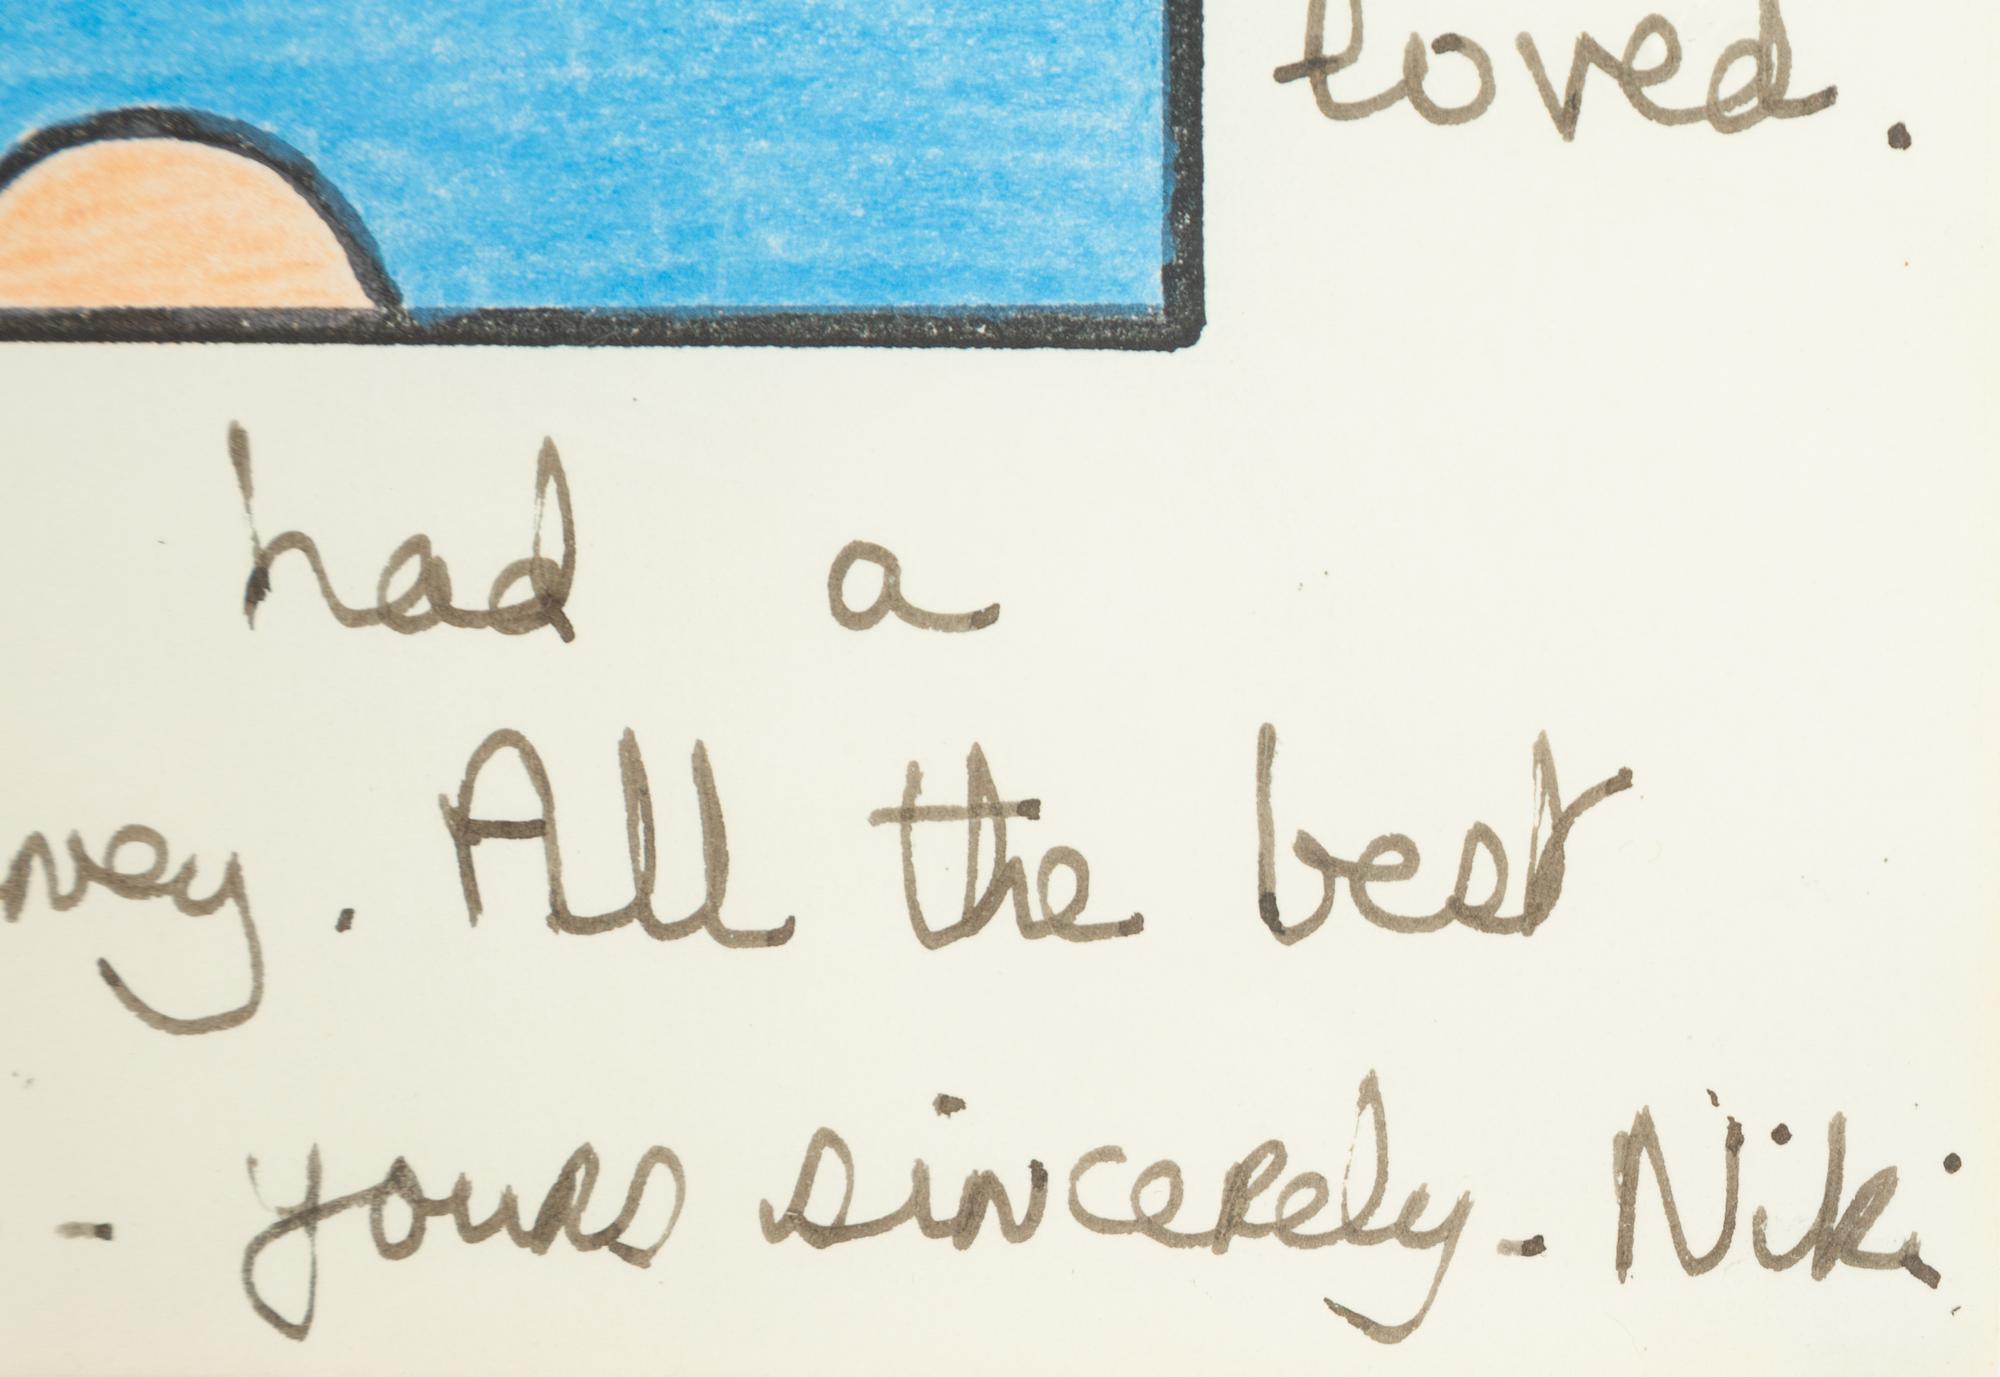 loved.
had a
. All the best
- yours sincerely - Niki